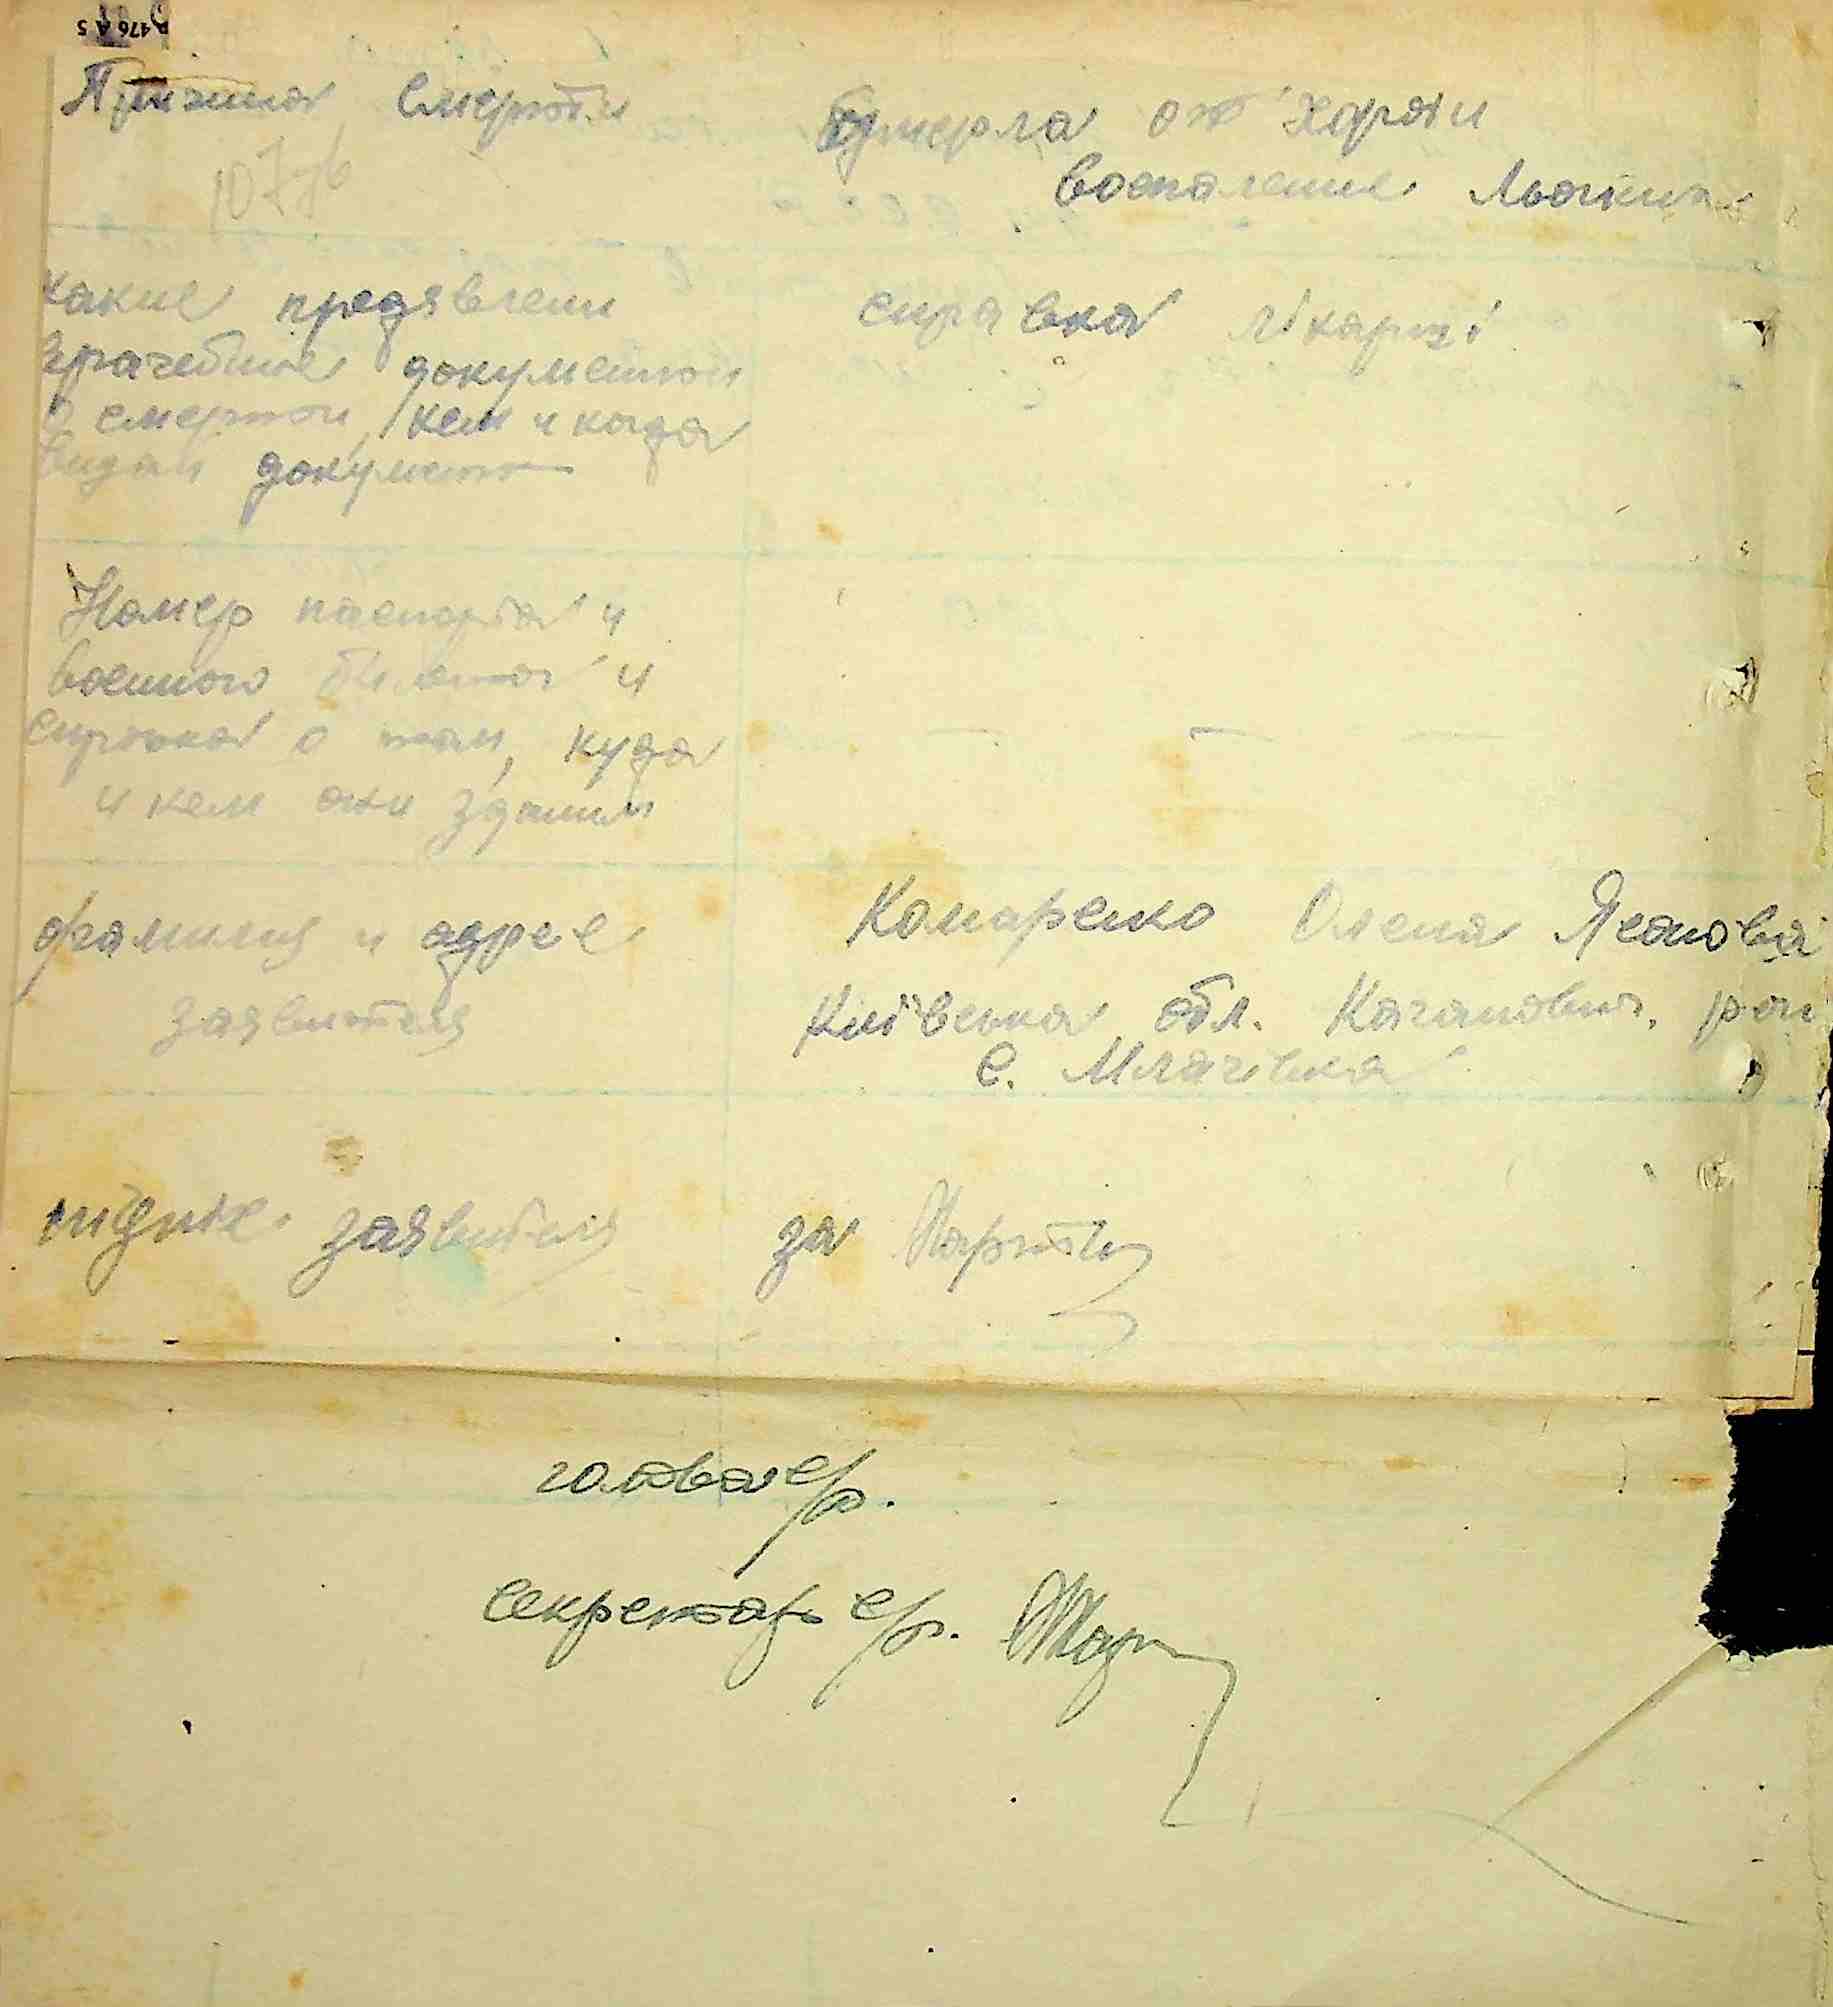 Причина смерти
умерла от кори
воспаление льогких
какие предявлени
врачебние документи
о смерти, кем и когда
видан документ
справка лікарні
Номер паспорта и
военного билета и
справка о том, куда
и кем они здани
— — —
фамилия и адрес
заявителя
Комаренко Олена
Київська обл. Каганович. рай
с. Млачівка
підпис заявителя
за
голова с/р.
секретарь с/р.